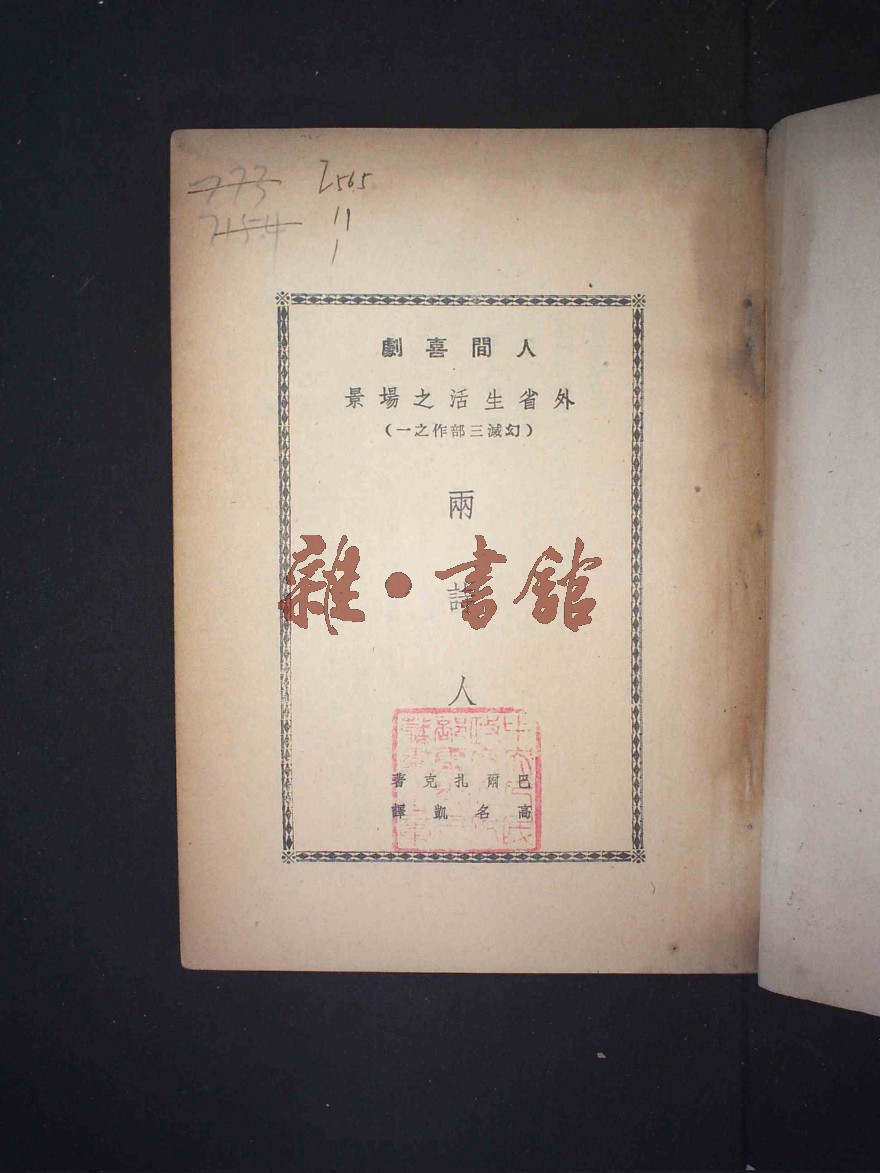 773 I565
7154 11
1
人間喜劇
外省生活之場景
(幻滅三部作之一)
兩詩人
雜·書館
巴爾扎克著
高名凱譯